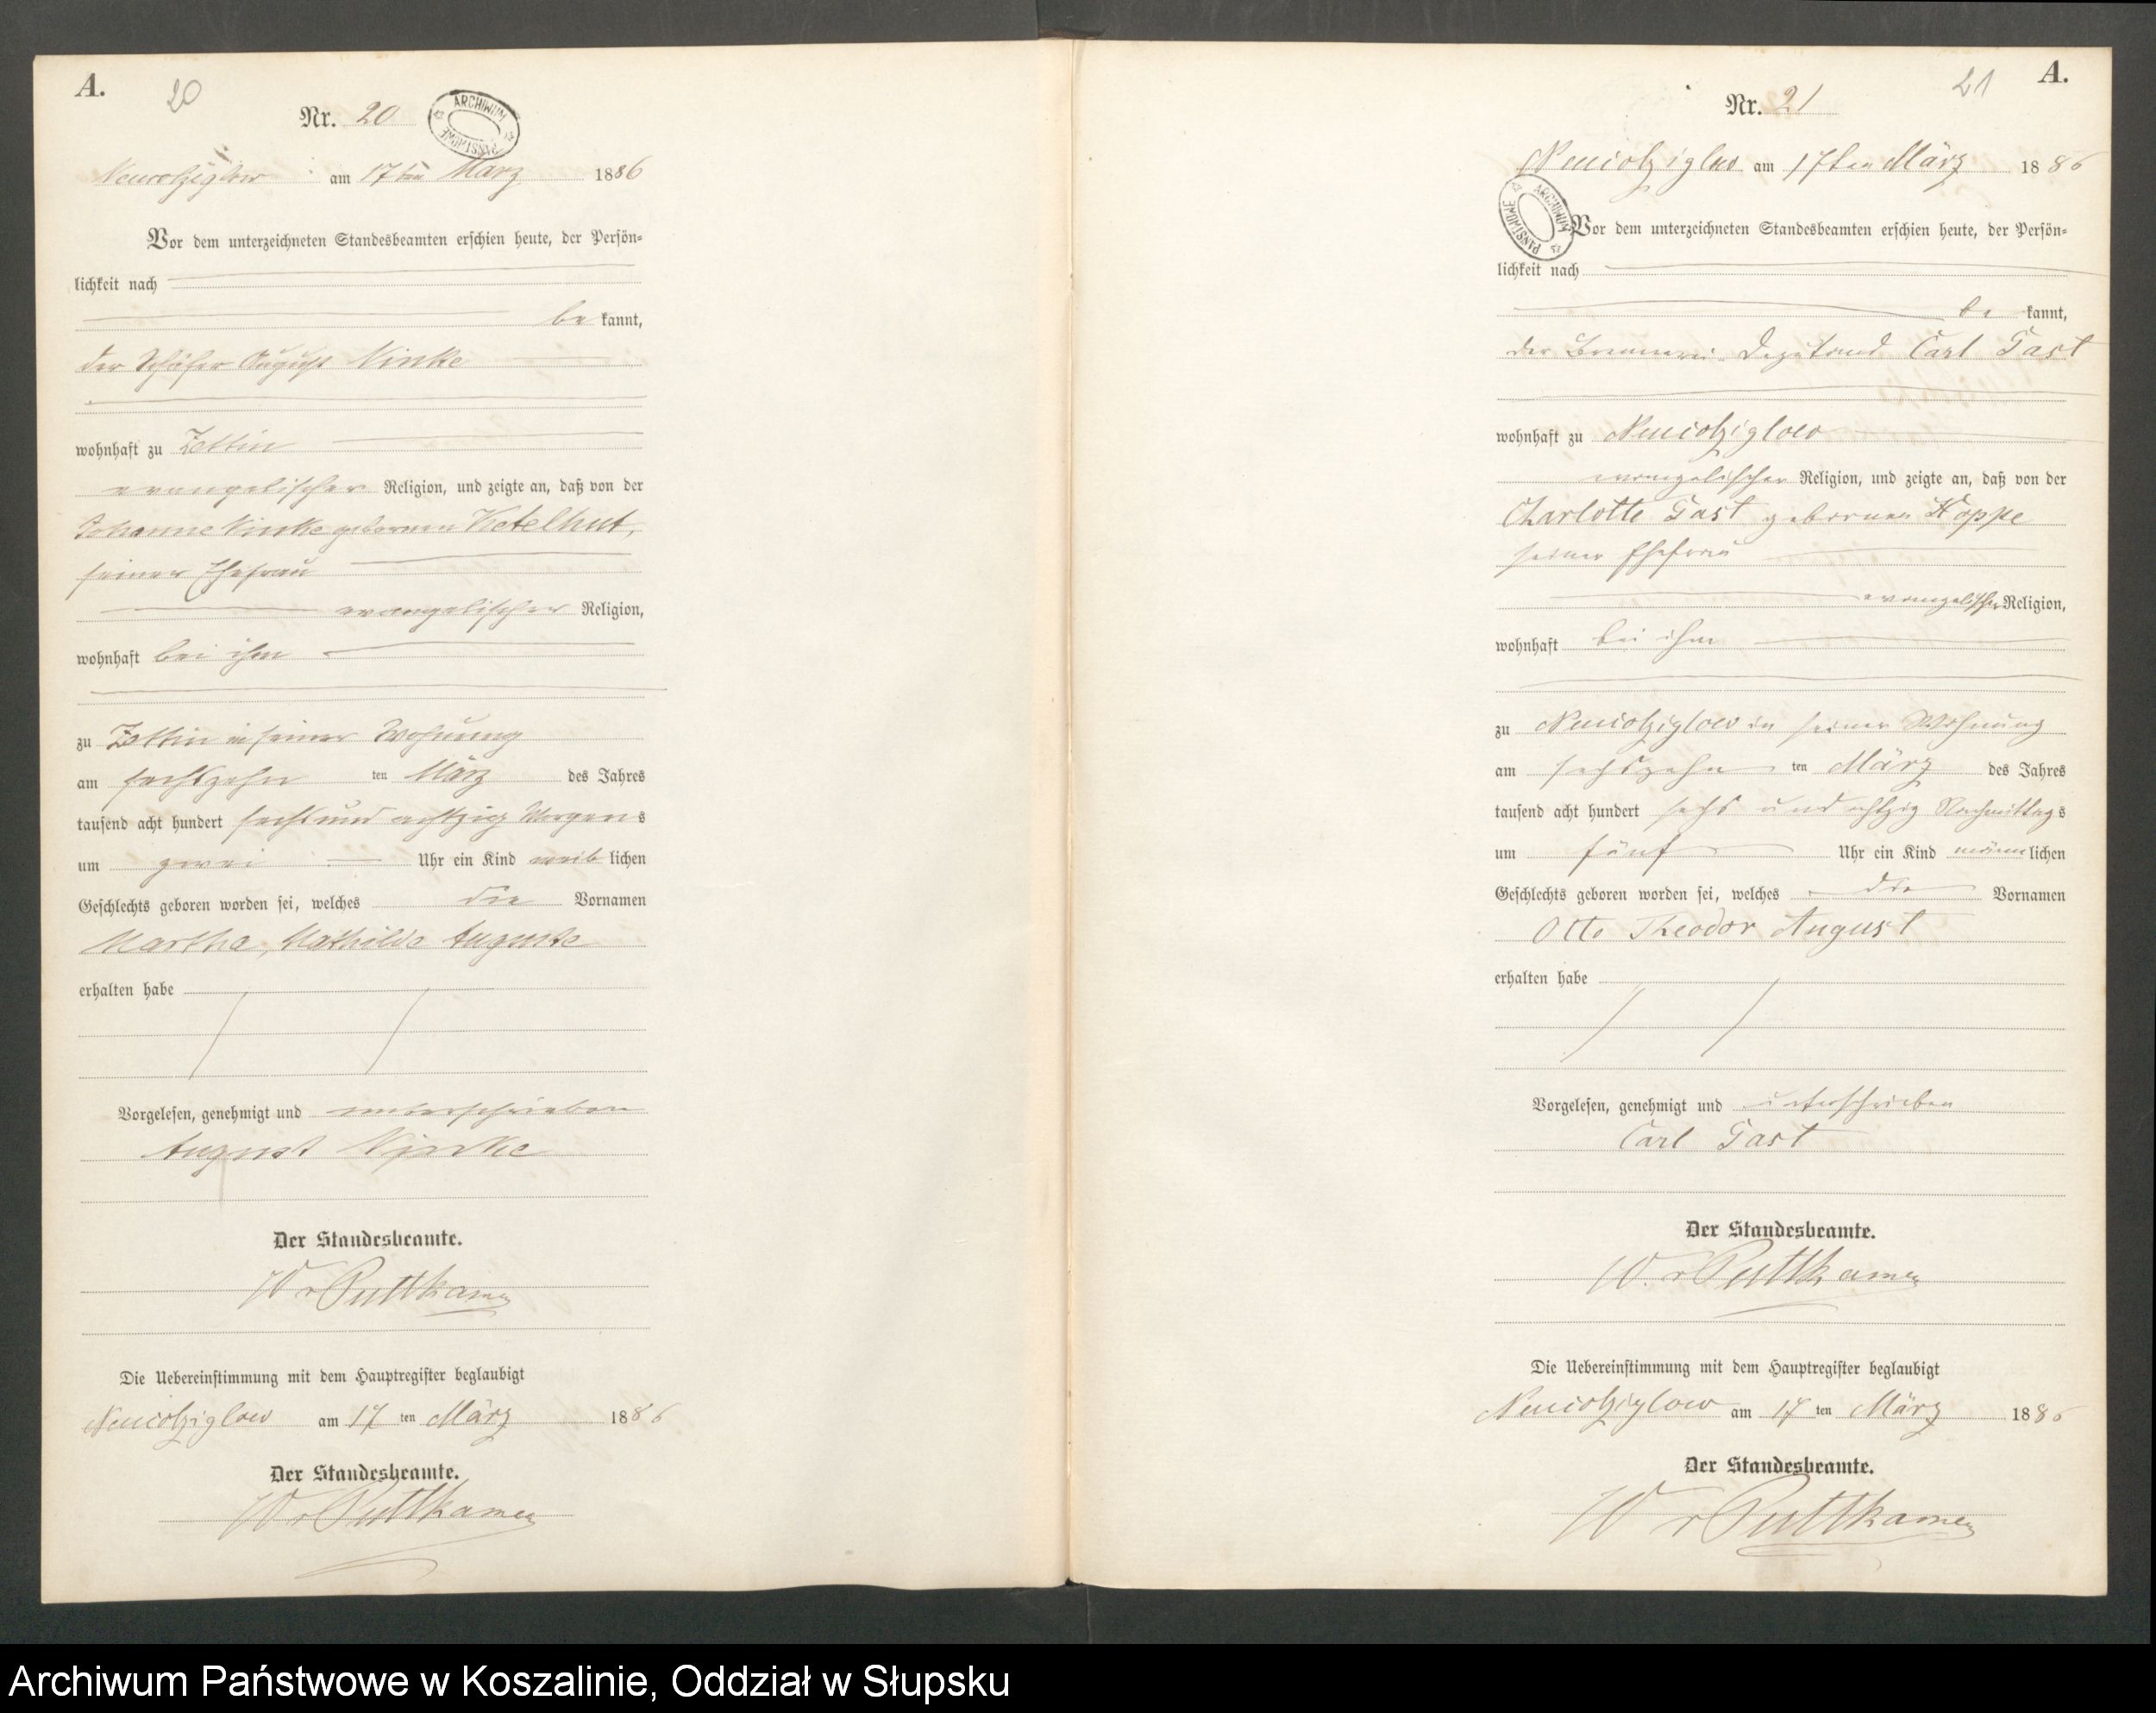 A.
20
Nr. 20
ARCHIWUM PAŃSTWOWE
Neucolziglow am 17ten März 1886
Vor dem unterzeichneten Standesbeamten erschien heute, der Persön=
lichkeit nach
be kannt,
der Schäfer August Vinke
wohnhaft zu Zettin
evangelischer Religion, und zeigte an, daß von der
Johanne Vinke geborenen Ketelhut,
seiner Ehefrau
evangelischer Religion,
wohnhaft bei ihm
zu Zettin in seiner Wohnung
am sechszehn ten März des Jahres
tausend acht hundert sechs und achtzig Morgens
um zwei Uhr ein Kind weib lichen
Geschlechts geboren worden sei, welches die Vornamen
Martha, Mathilde Auguste
erhalten habe
Vorgelesen, genehmigt und unterschrieben
August
Der Standesbeamte.
W v Puttkamer
Die Uebereinstimmung mit dem Hauptregister beglaubigt
Neucolziglow am 17 ten März 1886
Der Standesbeamte.
W v Puttkamer
A.
21
Nr. 21
ARCHIWUM PAŃSTWOWE
Neucolziglow am 17ten März 1886
Vor dem unterzeichneten Standesbeamten erschien heute, der Persön=
lichkeit nach
be kannt,
der Brennerei-Deputand Carl Gast
wohnhaft zu Neucolziglow
evangelischer Religion, und zeigte an, daß von der
Charlotte Gast geborenen Hoppe
seiner Ehefrau
evangelischer Religion,
wohnhaft bei ihm
zu Neucolziglow in seiner Wohnung
am sechszehn ten März des Jahres
tausend acht hundert sechs und achtzig Nachmittags
um fünf Uhr ein Kind männ lichen
Geschlechts geboren worden sei, welches die Vornamen
Otto Theodor August
erhalten habe
Vorgelesen, genehmigt und unterschrieben
Carl Gast
Der Standesbeamte.
W. v Puttkamer
Die Uebereinstimmung mit dem Hauptregister beglaubigt
Neucolziglow am 17 ten März 1886
Der Standesbeamte.
W v Puttkamer
Archiwum Państwowe w Koszalinie, Oddział w Słupsku